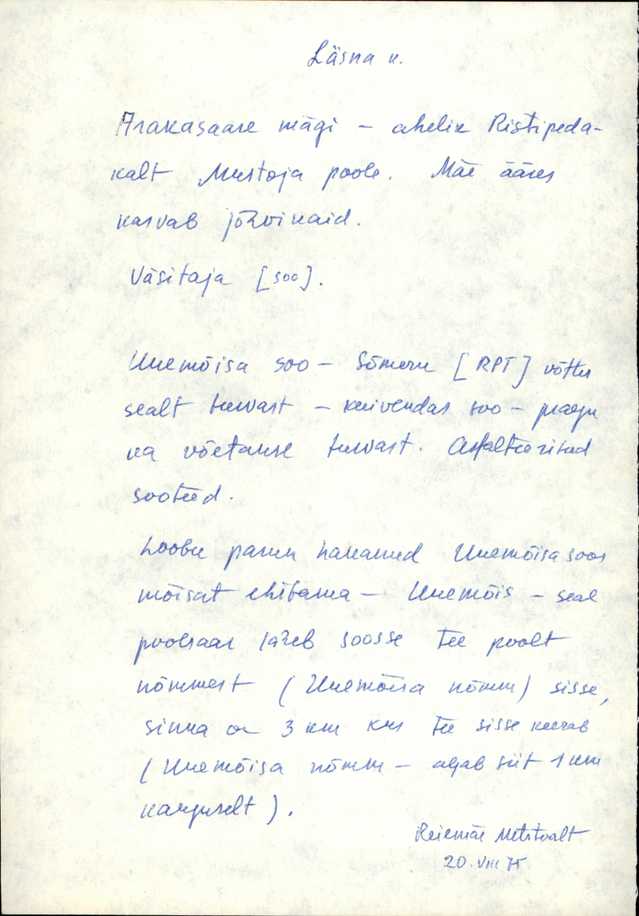 Läsna k.
Arakasaare mägi – ahelik Ristipeda-
kalt Mustoja poole. Mäe ääres
kasvab jõhvikaid.
Väsitaja [soo].
Unemõisa soo – Sõmeru [RPT] võttis
sealt turvast – kuivendas soo – praegu
ka võetakse turvast. Asfalteeritud
sooteed.
Loobu parun hakanud Unemõisa soos
mõisat ehitama – Unemõis – seal
poolsaar läheb soosse tee poolt
nõmmest (Unemõisa nõmm) sisse,
sinna on 3 km kus tee sisse keerab
(Unemõisa nõmm – algab siit 1 km
kauguselt).
20. VIII 75